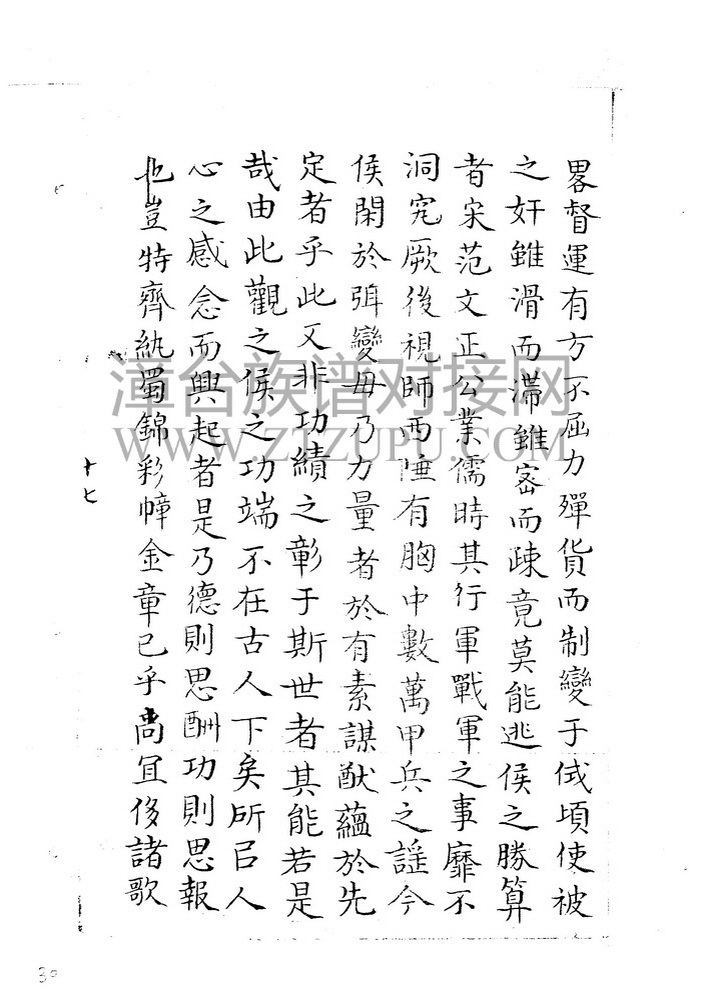 畧督運有方不屈力殫貨而制變于俄頃使被
之奸雖滑而滯雖宻而踈竟莫能逃侯之勝算
者宋范文正公業儒時其行軍戰軍之事靡不
洞究厥後視師西陲有胸中數萬甲兵之謡今
侯閑於弭變毋乃力量者於有素謀猷蘊於先
定者乎此又非功績之彰于斯世者其能若是
哉由此觀之侯之功端不在古人下矣所㠯人
心之感念而興起者是乃德則思酬功則思報
也豈特齊紈蜀錦彩幛金章已乎尚宜侈諸歌
十七
漳台族谱对接网
WWW.ZTZUPU.COM